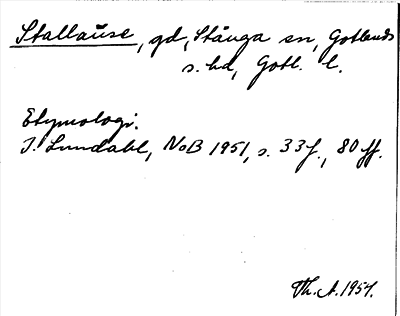 Stallause, gd, Stånga sn, Gotlands
s. hd, Gotl. l.
Etymologi.
I. Lundahl, NoB 1951, s. 33 f., 80 ff.
Th. A. 1954.